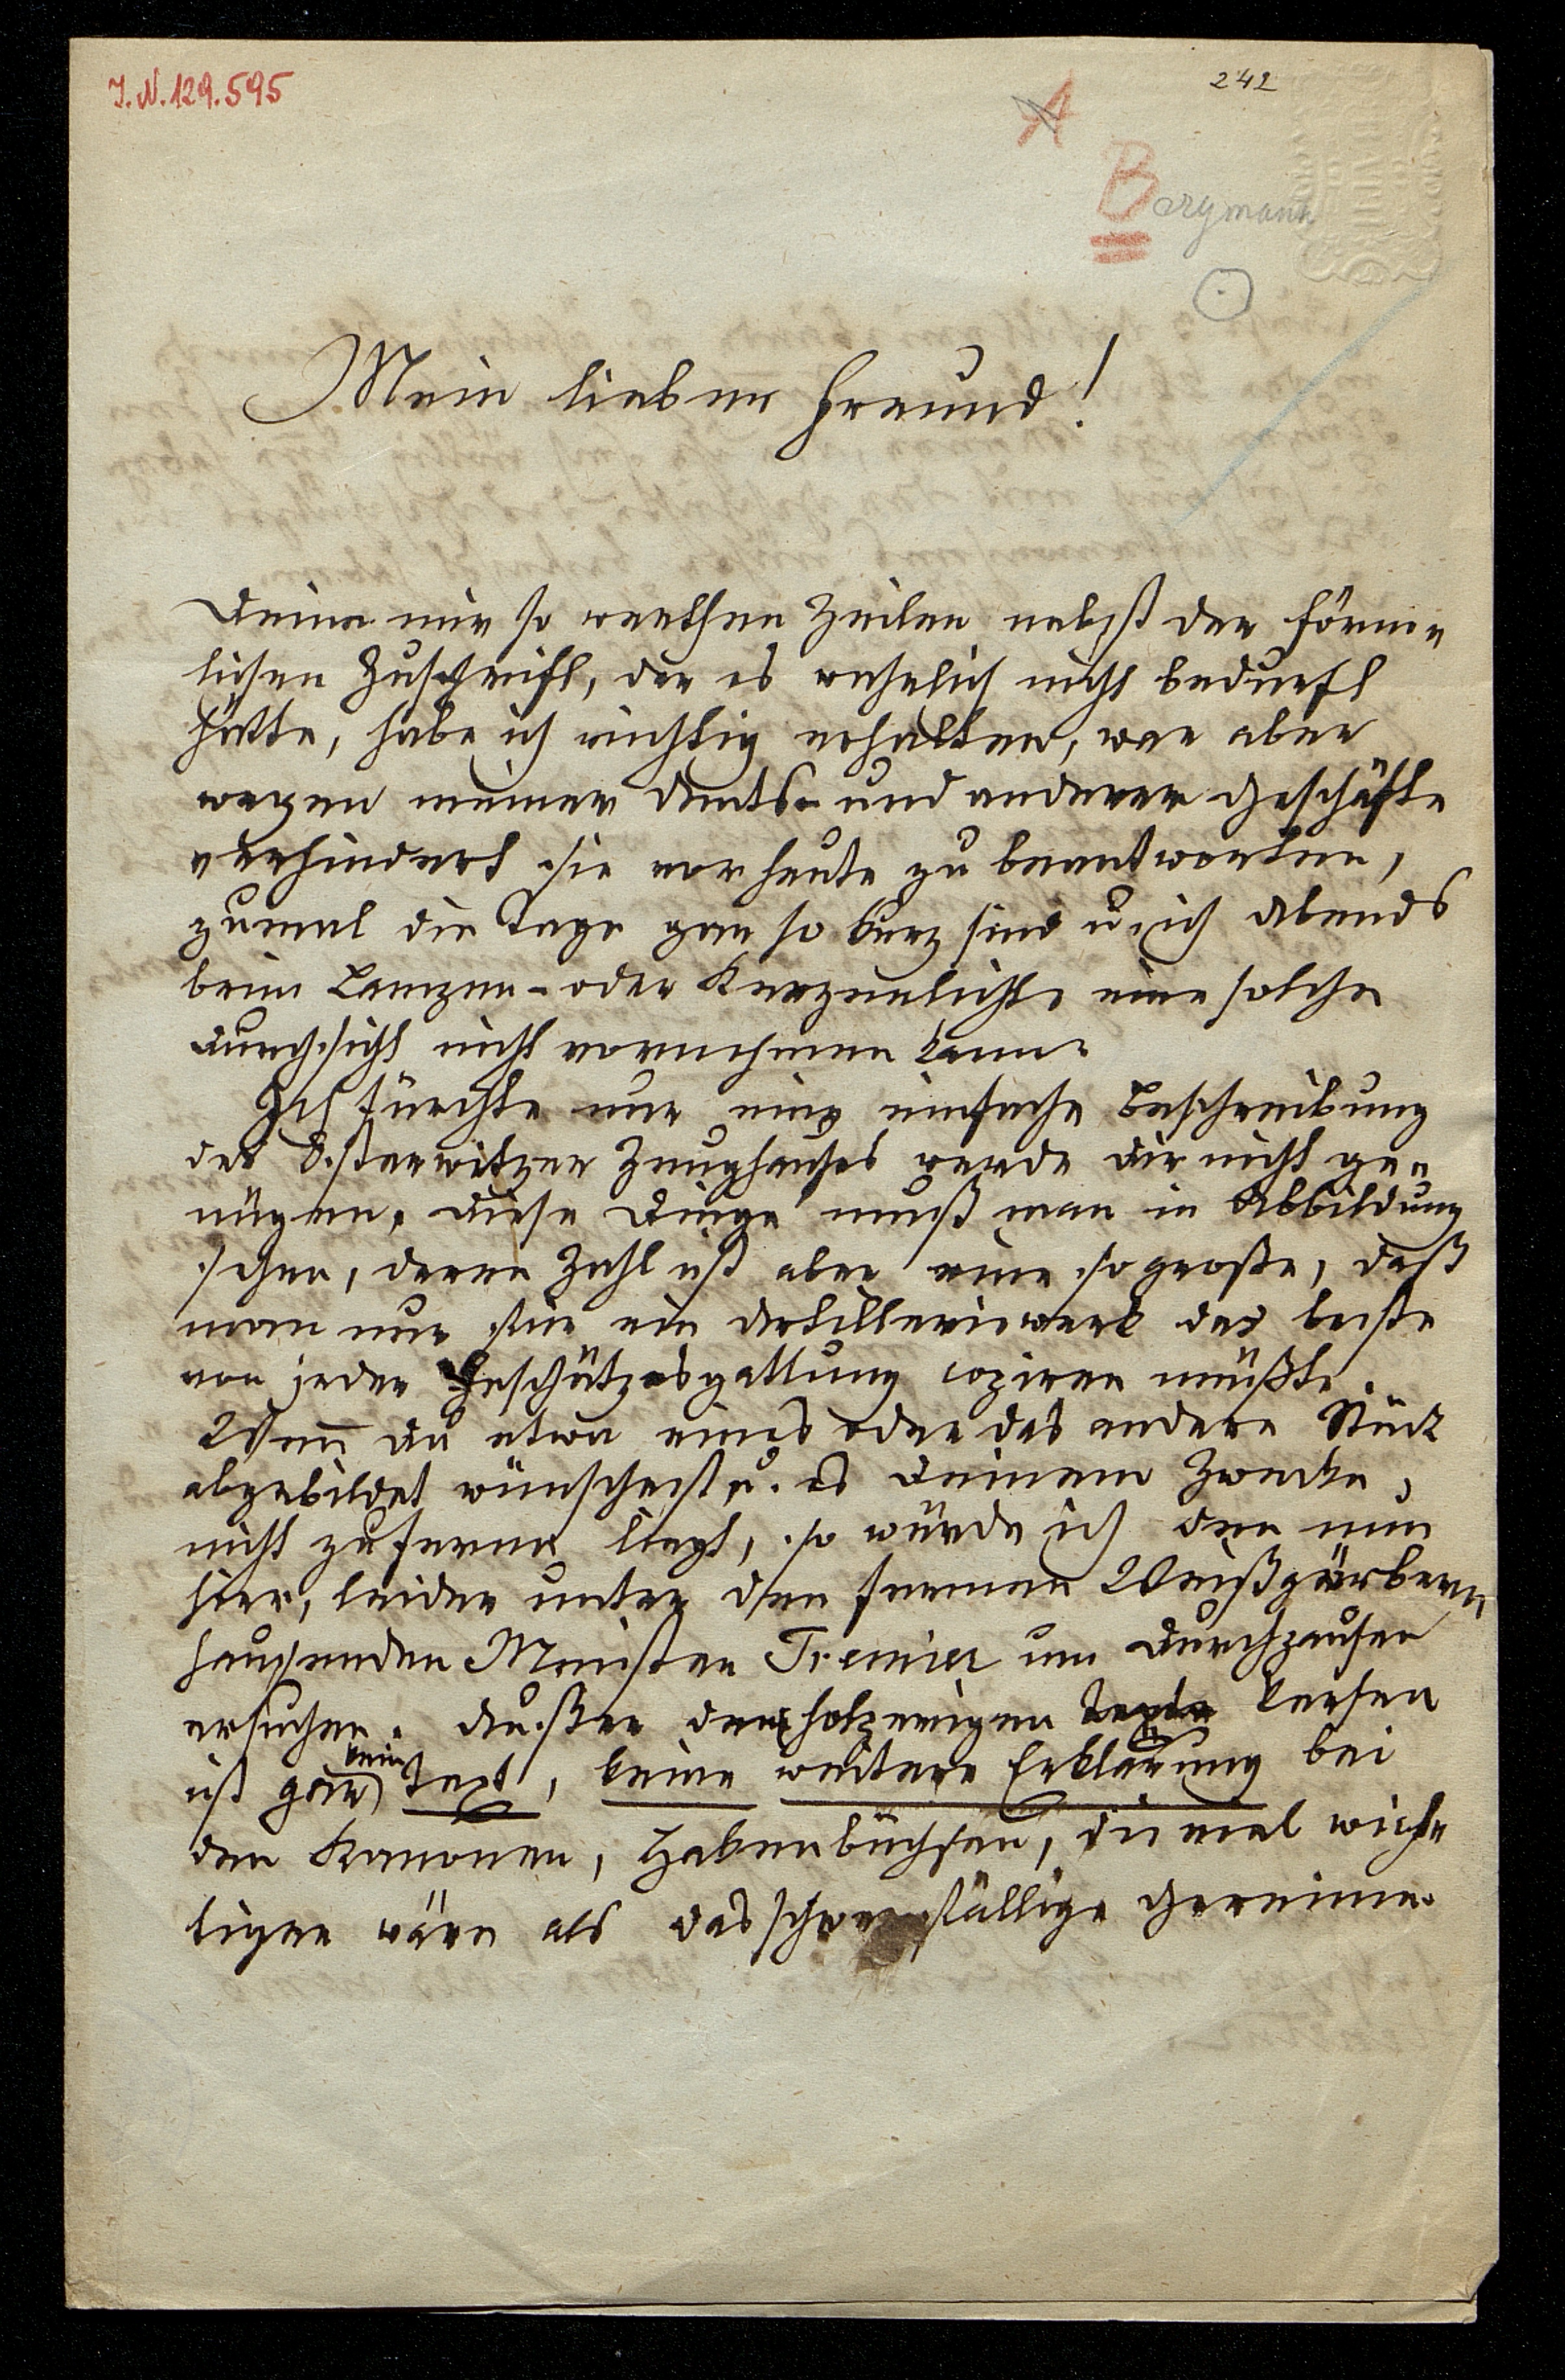 I. N. 129.595
242
A
Bergmann
Mein lieber Freund!
Deine mir so werthen Zeilen nebst der förm-
lichen Zuschrift, der es wahrlich nicht bedurft
hätte, habe ich richtig erhalten, war aber
wegen meiner Amts- und anderer Geschäfte
verhindert sie vor heute zu beantworten,
zumal die Tage gar so kurz sind u. ich Abends
beim Lampen- oder Kerzenlichte eine solche
Durchsicht nicht vornehmen kann.
Ich fürchte nur eine einfache Beschreibung
des Osterwitzer Zeughauses werde Dir nicht ge-
nügen, diese Dinge muß man in Abbildung
sehen, deren Zahl ist aber eine so große, daß
man nur für ein Artilleriewerk das beste
von jeder Geschützesgattung copiren müßte.
Wenn Du etwa eines oder das andere Stück
abgebildet wünschest u. es Deinem Zwecke
nicht zu ferne liegt, so würde ich den nun
hier, leider unter den fernen Weißgärbern
hausenden Meister Tremier um Durchzeichen
ersuchen. Außer den holperigen Texte Versen
ist gar kein Text, keine weitere Erklärung bei
den Kanonen, Hakenbüchsen, die mal wich-
tiger wäre als das schwerfällige Gereime